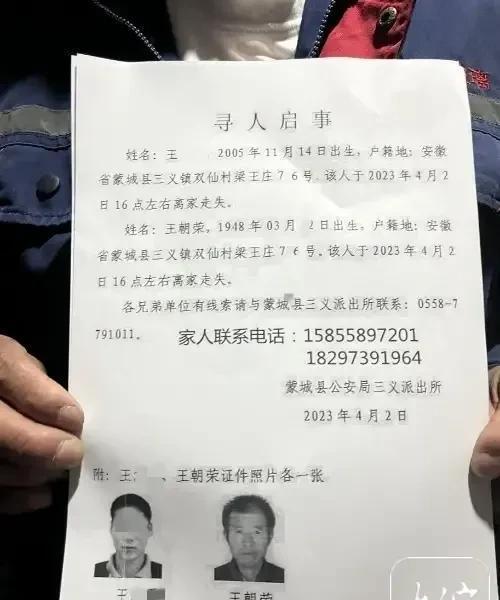 寻人启事
姓名：王 2005年11月14日出生，户籍地：安徽
省蒙城县三义镇双仙村梁王庄76号。该人于2023年4月2
日16点左右离家走失。
姓名：王朝荣，1948年03月 2日出生，户籍地：安徽
省蒙城县三义镇双仙村梁王庄76号。该人于2023年4月2
日16点左右离家走失。
各兄弟单位有线索请与蒙城县三义派出所联系：0558-7
791011。 家人联系电话：15855897201
18297391964
蒙城县公安局三义派出所
2023年4月2日
附：王 、王朝荣证件照片各一张
王 王朝荣